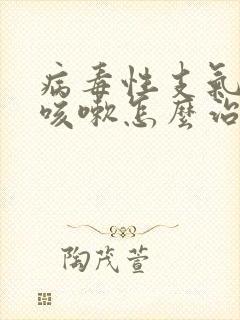 病毒性支氣
咳嗽怎麼治
陶茂萱